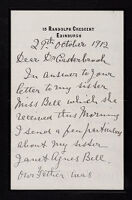 15 RANDOLPH CRESCENT
EDINBURGH
29th October 1912
Dear Dr Easterbrook
In answer to your
letter to my sister
Miss Bell which she
received this Morning
I send a few particulars
about my sister
Janet Agnes Bell
Our Father was